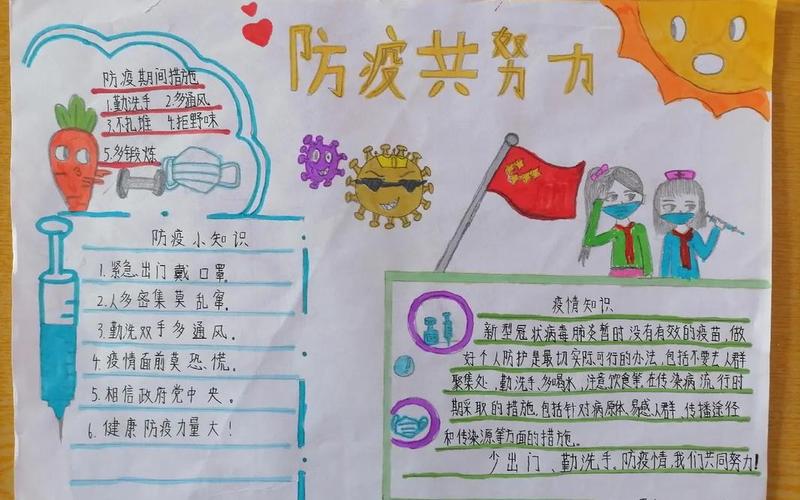 防疫共努力
防疫期间措施
1.勤洗手 2.多通风
3.不扎堆 4.拒野味
5.多锻炼
防疫小知识
1.紧急出门戴口罩。
2.人多密集莫乱窜。
3.勤洗双手多通风。
4.疫情面前莫恐慌。
5.相信政府党中央。
6.健康防疫力量大!
疫情知识
新型冠状病毒肺炎暂时没有有效的疫苗,做
好个人防护是最切实际可行的办法,包括不要去人群
聚集处、勤洗手,多喝水,注意饮食等,在传染病流行时
期采取的措施,包括针对病原体,易感人群、传播途径
和传染源等方面的措施。
少出门、勤洗手。防疫情,我们共同努力!